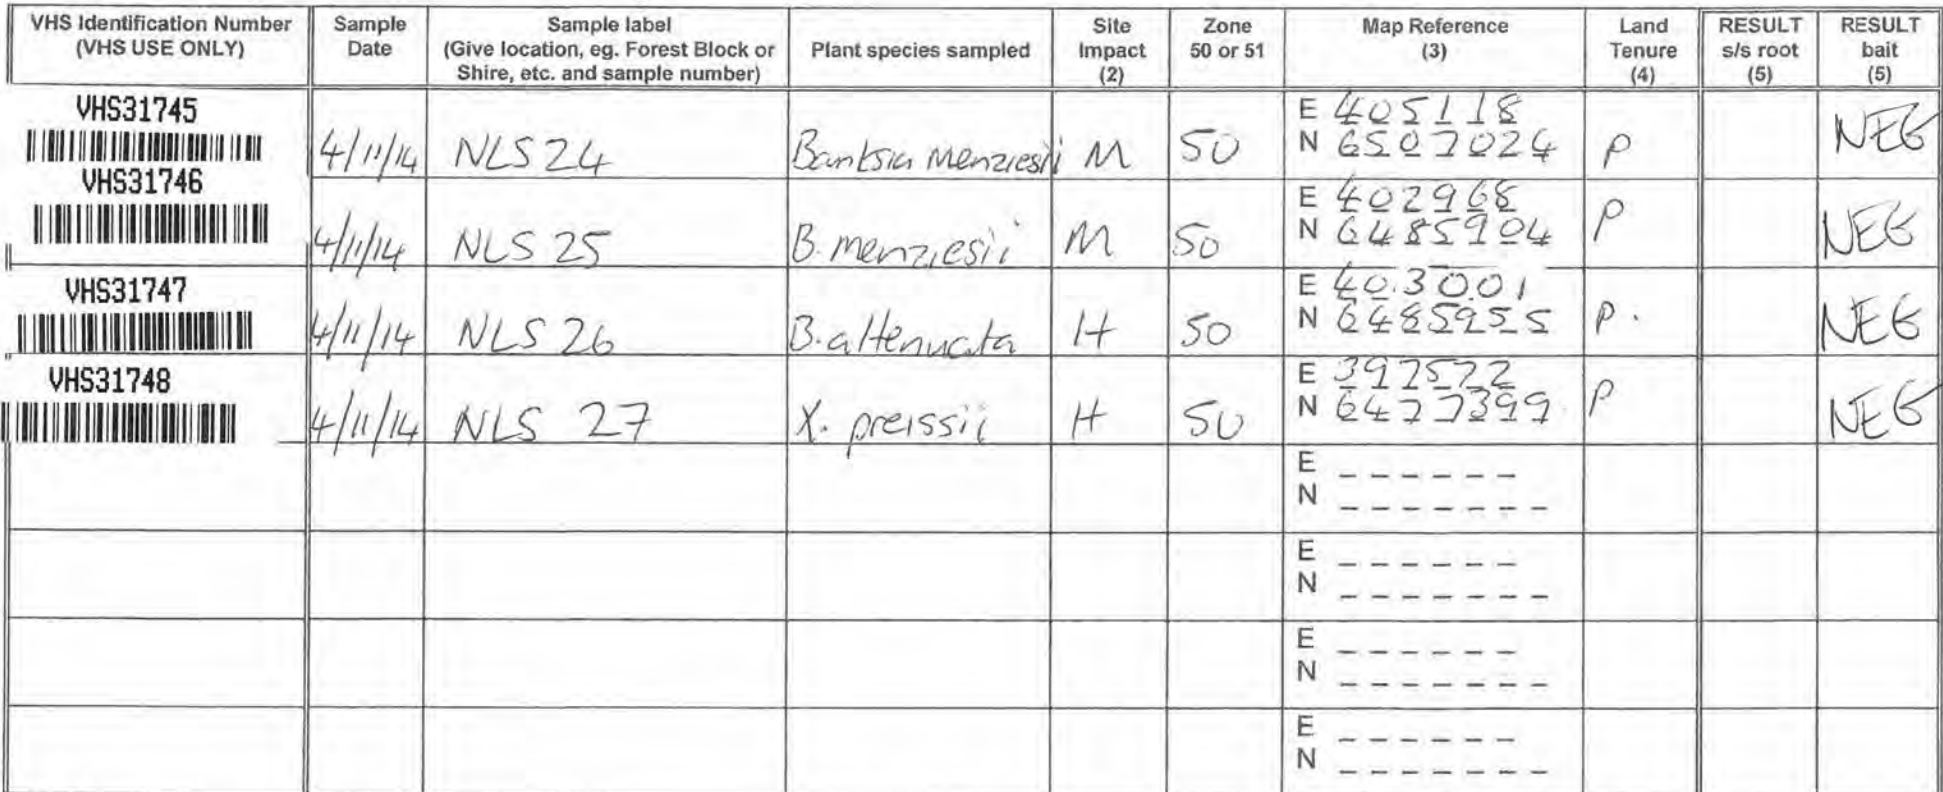 VHS Identification Number
(VHS USE ONLY)
Sample
Date
Sample label
(Give location, eg. Forest Block or
Shire, etc. and sample number)
Plant species sampled
Site
Impact
(2)
Zone
50 or 51
Map Reference
(3)
Land
Tenure
(4)
RESULT
s/s root
(5)
RESULT
bait
(5)
VHS31745
4/11/14 NLS 24 Banksia menziesii M 50
E 405118
N 6507024
P
NEG
VHS31746
4/11/14 NLS 25 B. menziesii M 50
E 402968
N 6485904
P
NEG
VHS31747
4/11/14 NLS 26 B. attenuata H 50
E 403001
N 6485955
P.
NEG
VHS31748
4/11/14 NLS 27 X. preissii H 50
E 397572
N 6477399
P
NEG
E
N
E
N
E
N
E
N